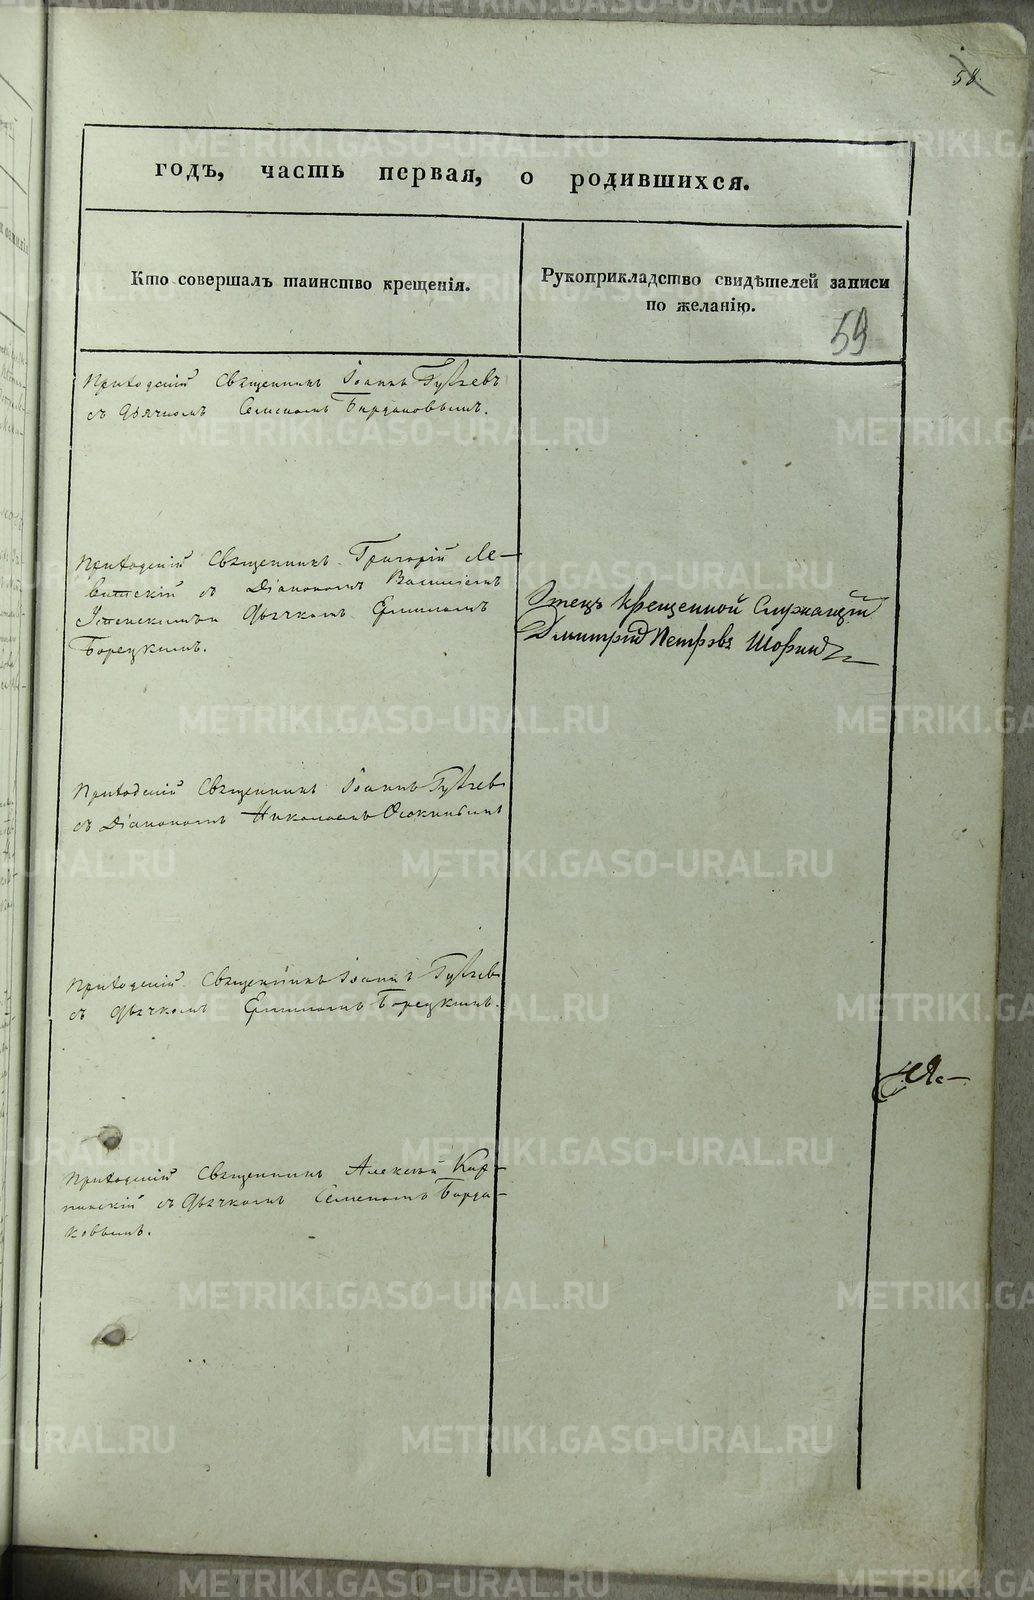 58.
годъ, часть первая, о родившихся.
Кто совершалъ таинство крещенія.
Рукоприкладство свидѣтелей записи
по желанію.
59
Приходскій Священникъ Іоаннъ Гуляевъ
съ Дьячкомъ Семеномъ Бардаковымъ.
Приходскій Священникъ Григорій Ле-
витскій съ Діакономъ Василіемъ
Дьячкомъ
Борецкимъ.
Отецъ крещенной Служащій
Дмитрій Петровъ Шоринъ
Приходскій Священникъ Іоаннъ Гуляевъ
съ Діакономъ Николаемъ Осокинымъ
Приходскій Священникъ Іоаннъ Гуляевъ
съ Дьячкомъ Борецкимъ.
Приходскій Священникъ Алексѣй Кор-
съ Дьячкомъ Семеномъ Барда-
ковымъ.
METRIKI.GASO-URAL.RU